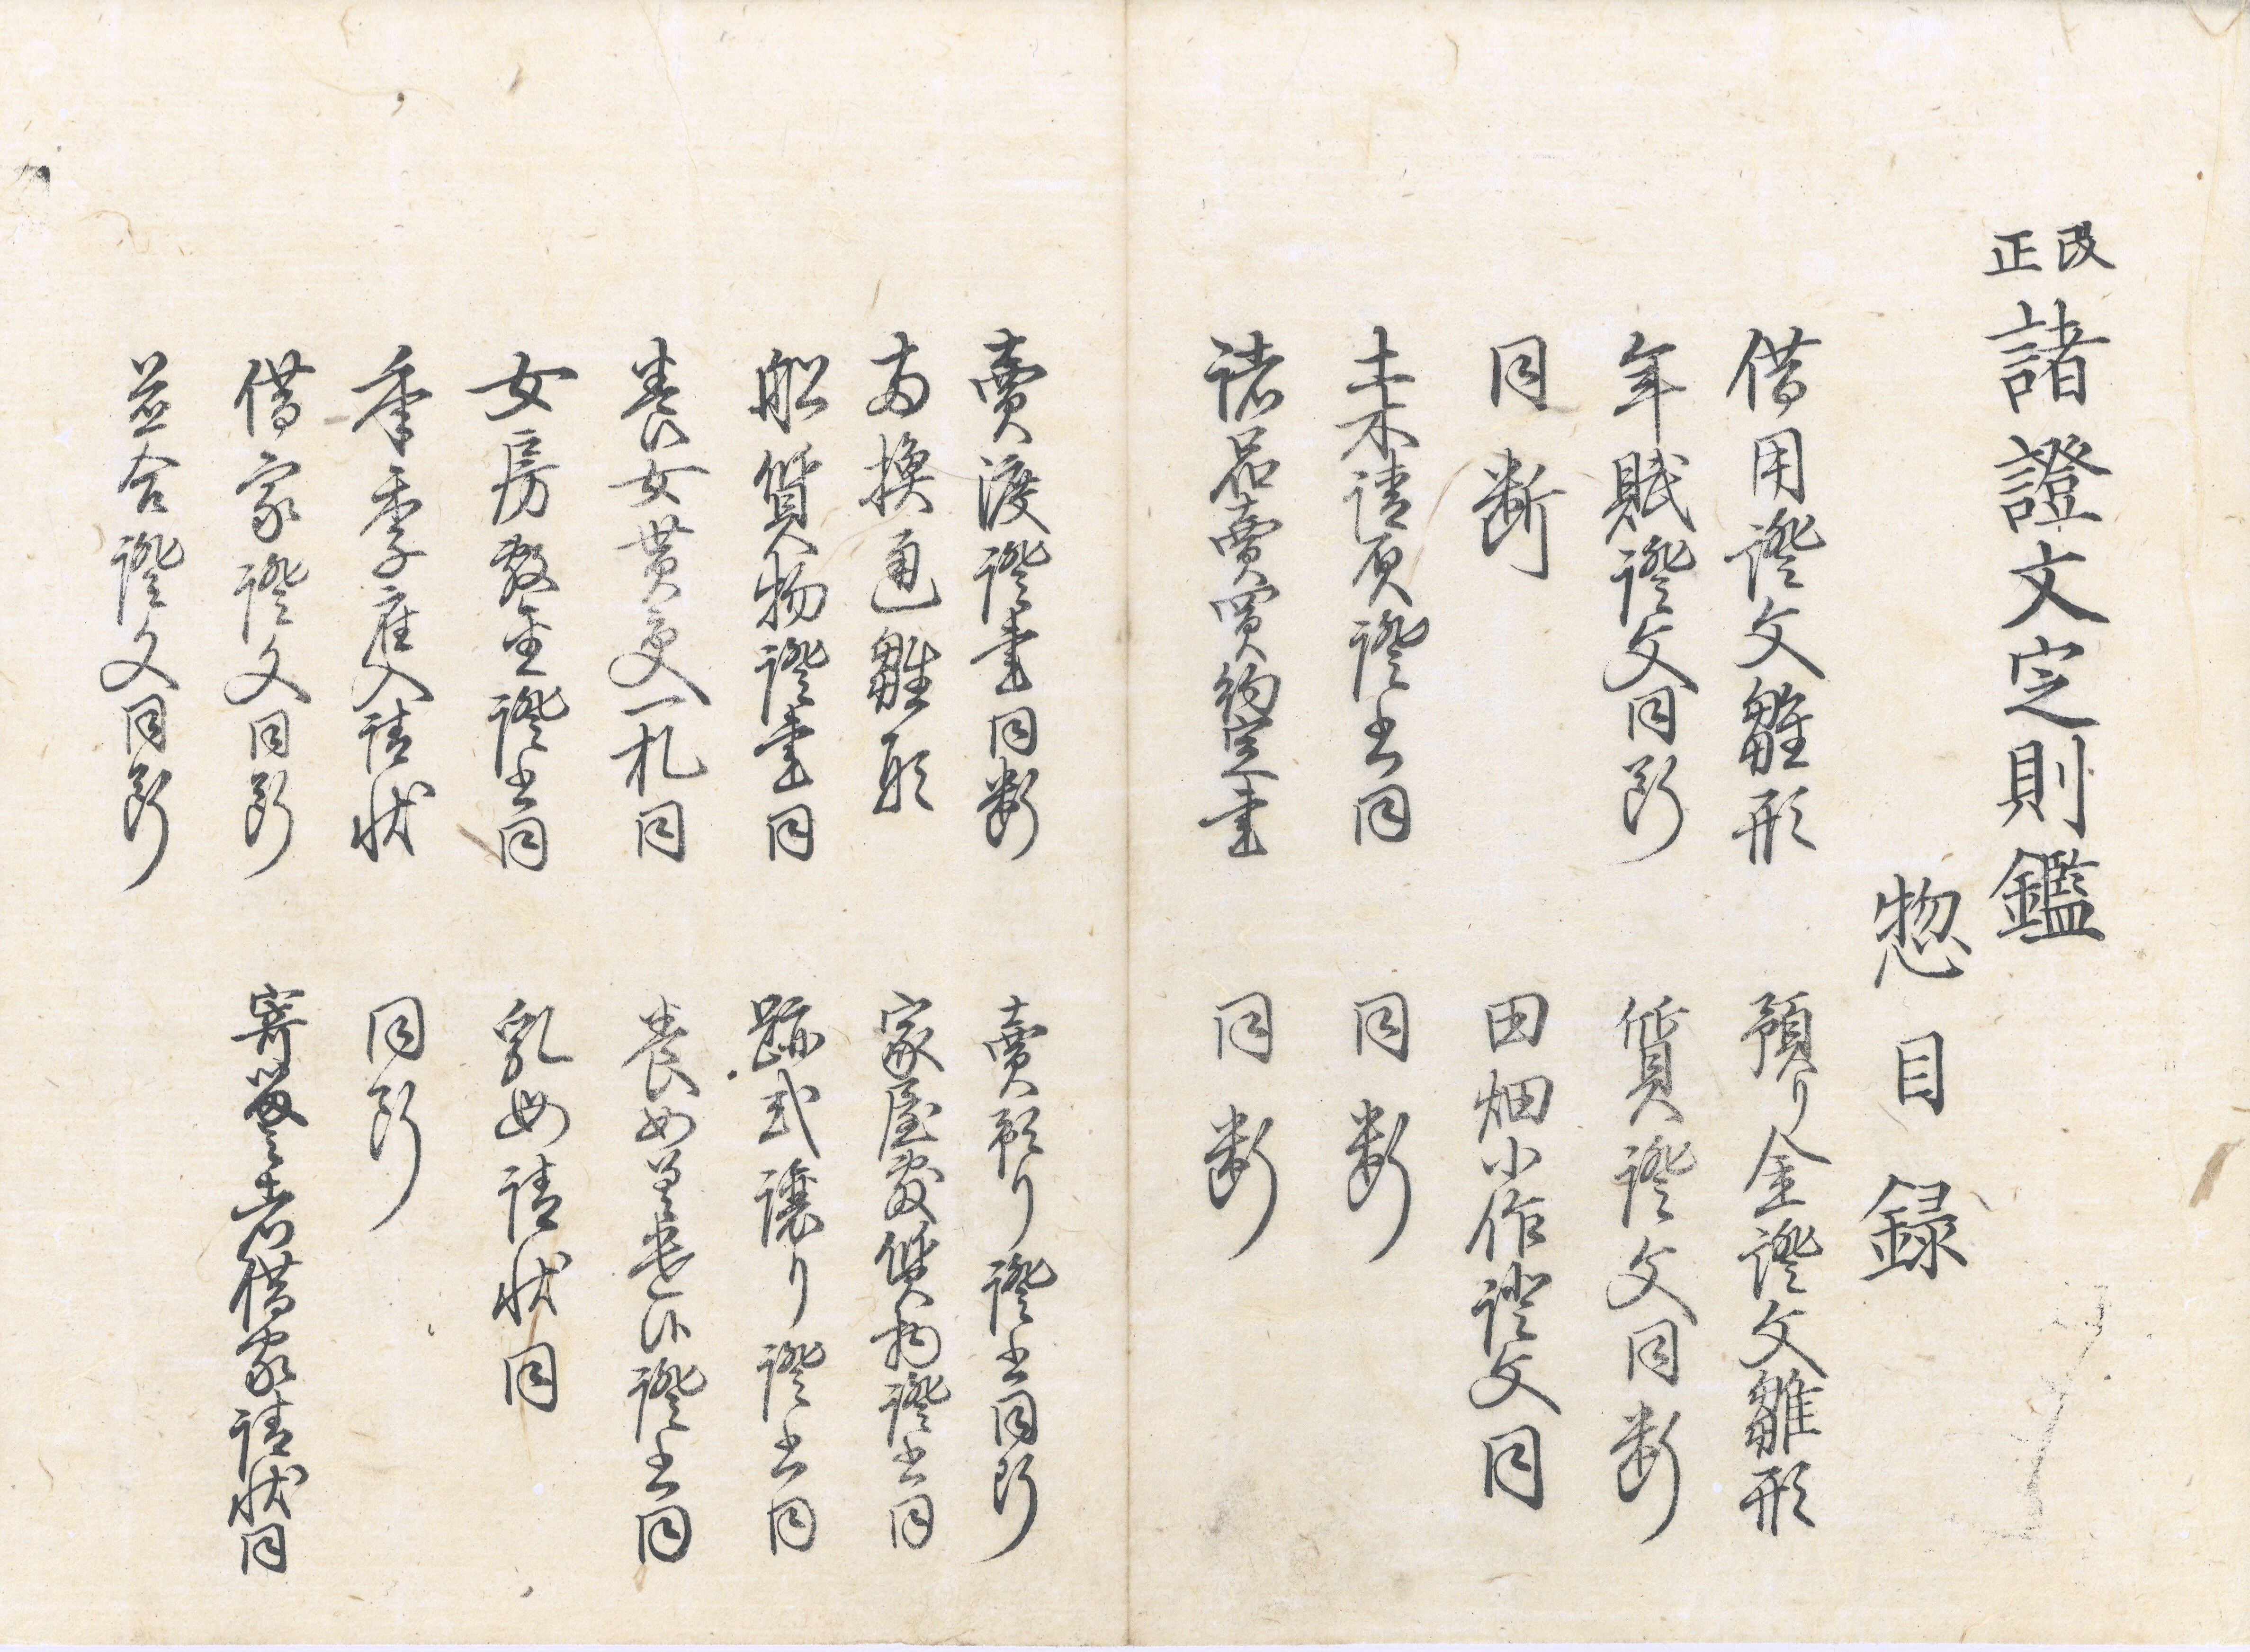 改正 諸證文定則鑑
惣目録
借用證文雛形
預り金證文雛形
年賦證文同断
質證文同断
同断
田畑小作證文同
土木請負證書同
同断
諸品賣買約定書
同断
賣渡證書同断
賣預り證書同断
為換通雛形
家屋敷質物證書同
船質物證書同
跡式譲り證書同
養女貰受一札同
養女差遣候證書同
女房 金證書同
乳母請状同
年季雇入請状
同断
借家證文同断
寄留之者借家請状同
並合證文同断